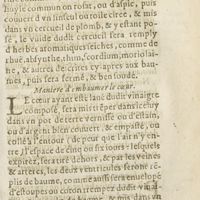 huyle commun on rosat, ou d'aspic, puis
couuert d'vn linseul ou toile ciree, & mis
dans vn cercueil de plomb, & y estant po-
sé, le vuide dudit cercueil sera remply
d'herbes aromatiques seiches, comme de
rhuë, absynthe, thim, scordium, moriolai-
ne, & autres descrites cy-apres aux bau-
mes, puis sera fermé, & ben soudé.
Maniere d'embaumer le cœur.
LE cœur ayant esté laué dudit vinaigre
composé, sera mis treper dans iceluy
dans vn pot de terre vernisse ou d'estain,
ou d'argent bien couuert, & empasté, ou
collé à l'entour (de peur que l'air n'y en-
tre) l'espace de cinq ou six iours: lesquels
expirez, sera tiré dehors, & par les veines
& arteres, les deux ventricules seront re-
plis de baume, comme aussi sera enuelopé
d'estoupes ou coton trempez dudit vinai-